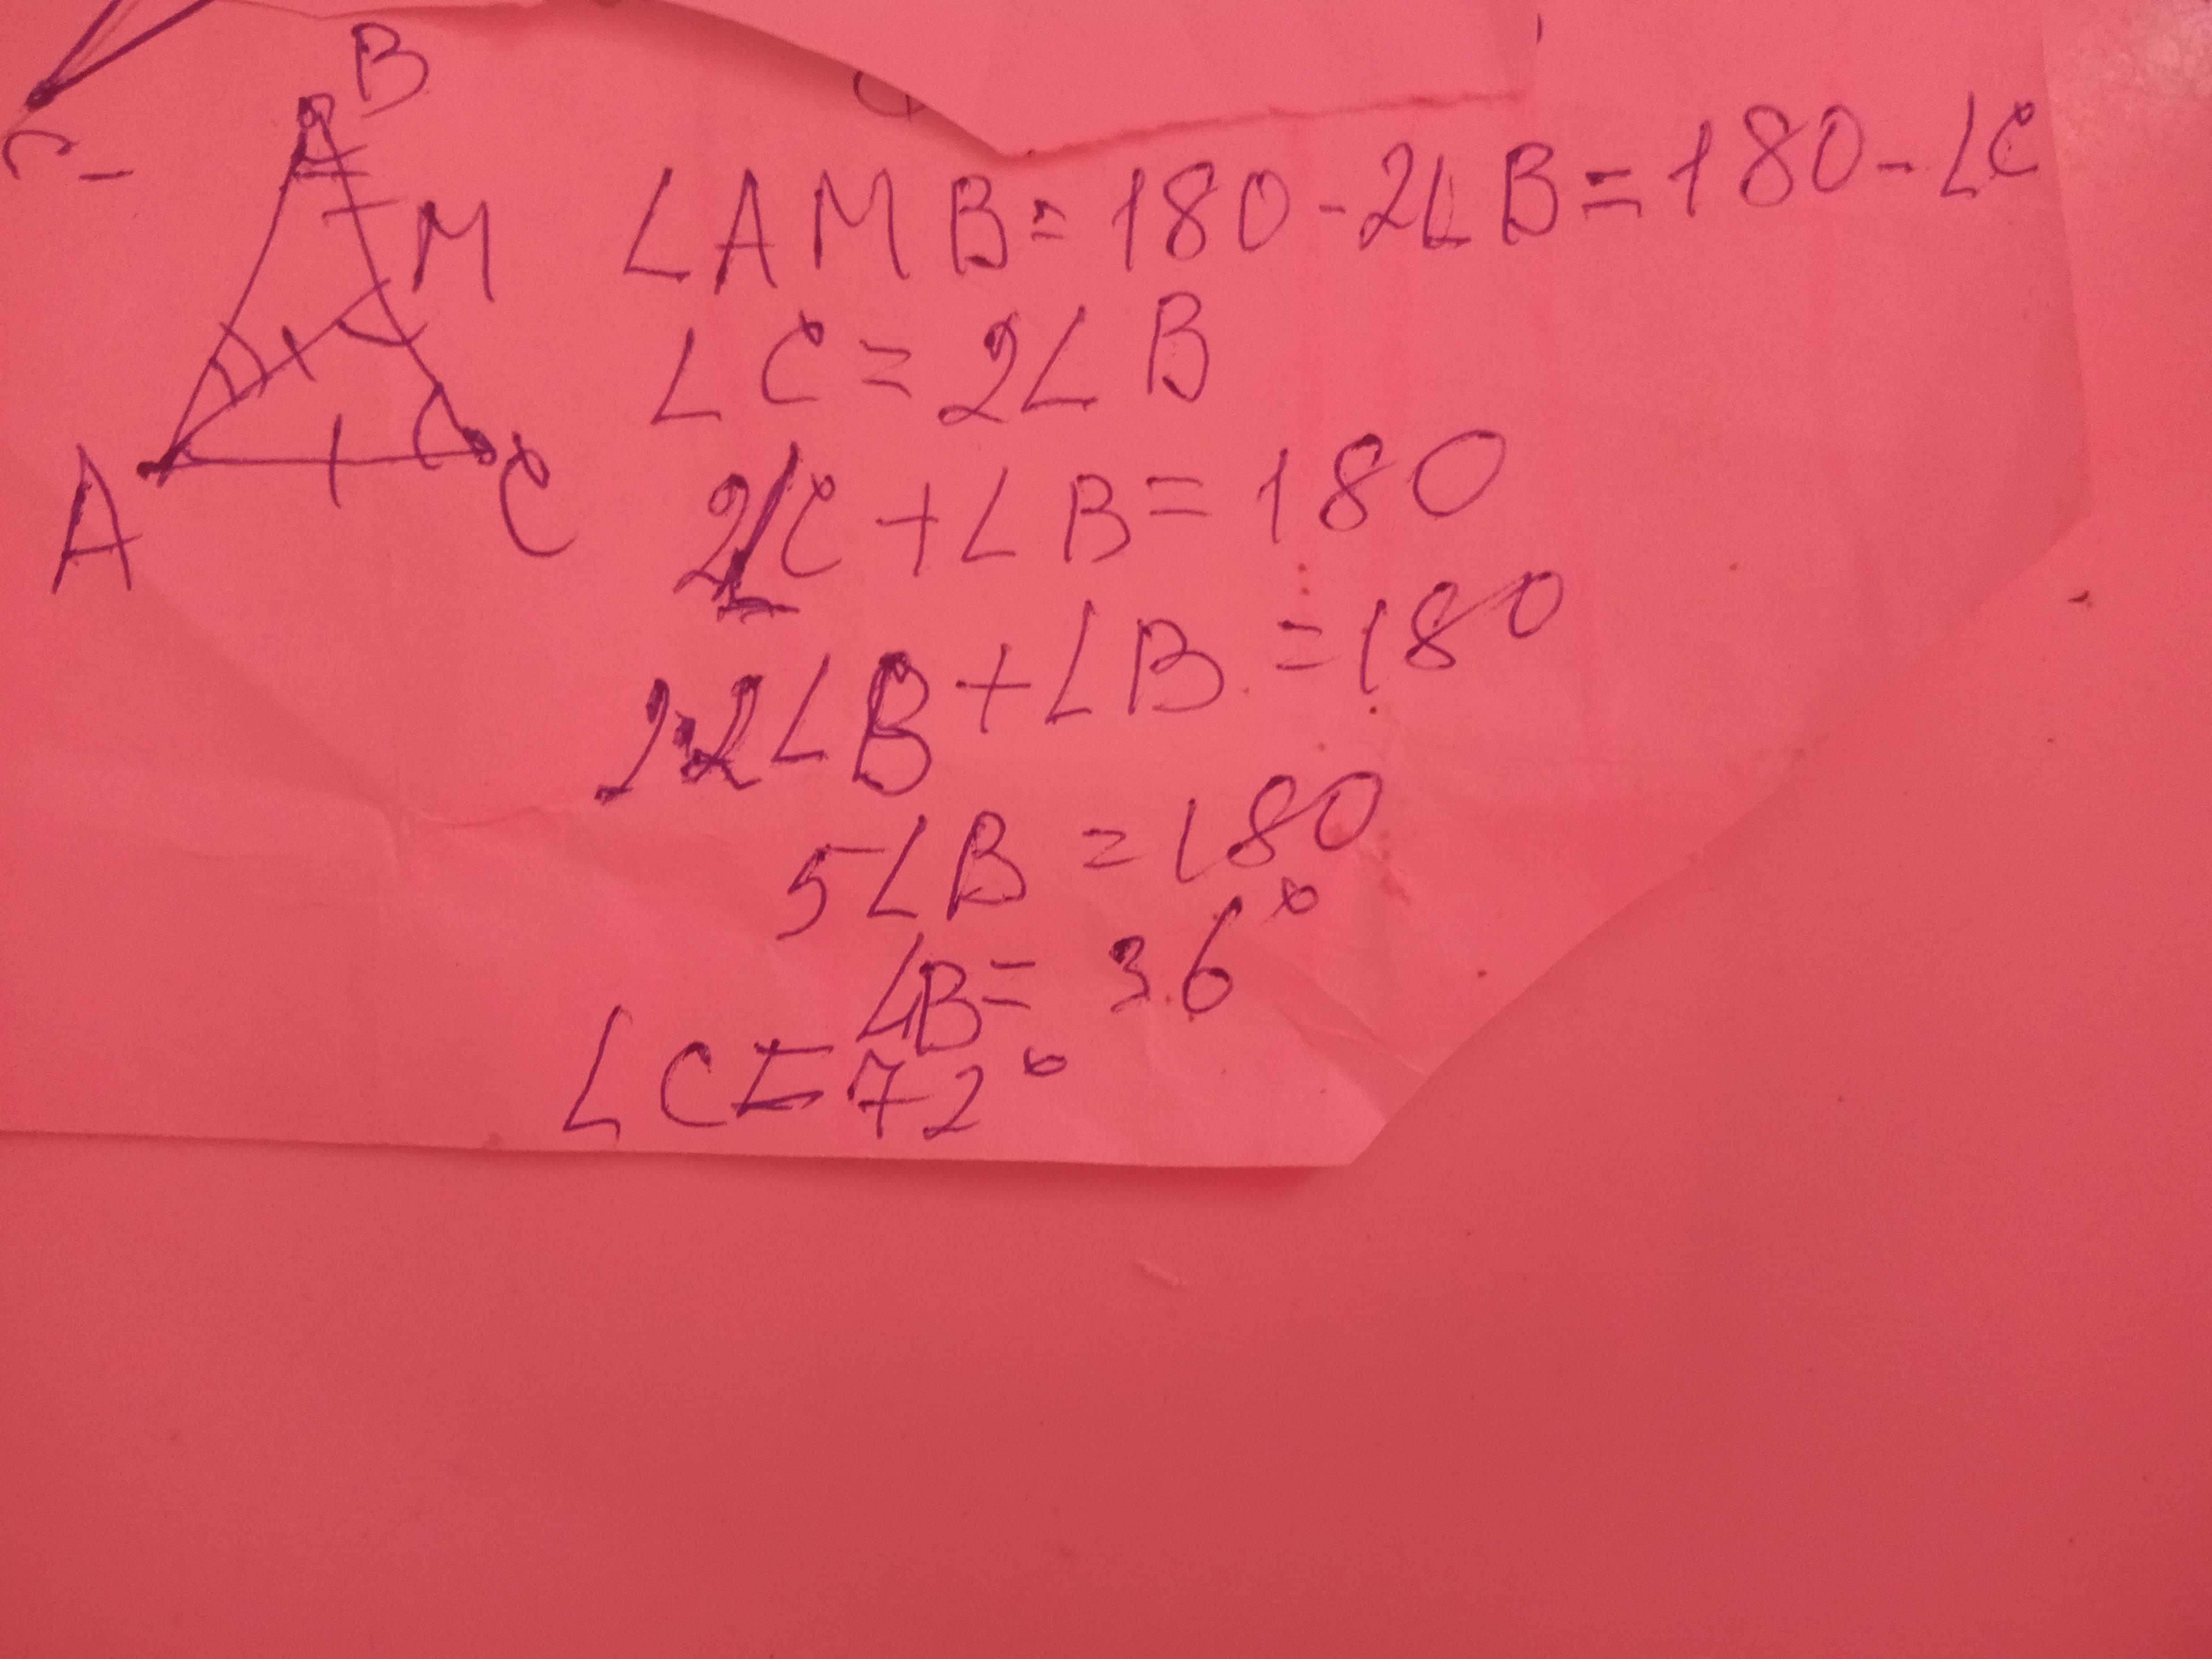 B
M
A
C
∠AMB=180-2∠B=180-∠C
∠C=2∠B
2∠C+∠B=180
2·2∠B+∠B=180
5∠B=180
∠B=36°
∠C=72°